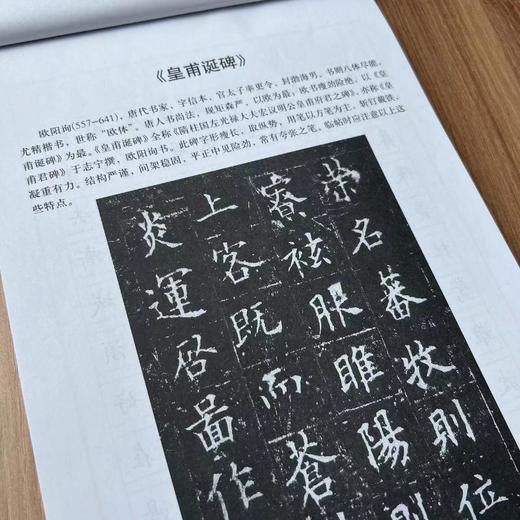 《皇甫诞碑》
欧阳询(557—641)，唐代书家，字信本，官太子率更令，封渤海男。书则八体尽能，
尤精楷书，世称“欧体”。唐人书尚法，规矩森严，以欧为最，欧书瘦劲险绝，以《皇
甫诞碑》为最。《皇甫诞碑》全称《隋柱国左光禄大夫宏议明公皇甫府君之碑》，亦称《皇
甫君碑》于志宁撰，欧阳询书。此碑字形瘦长，取纵势，用笔以方笔为主，斩钉截铁，
凝重有力。结构严谨，间架稳固，平正中见险劲，常有夸张之笔，临帖时应注意以上这
些特点。
荣名蕃牧则位
寮袨服睢陽則
上客既而蒼
炎運啓啚作